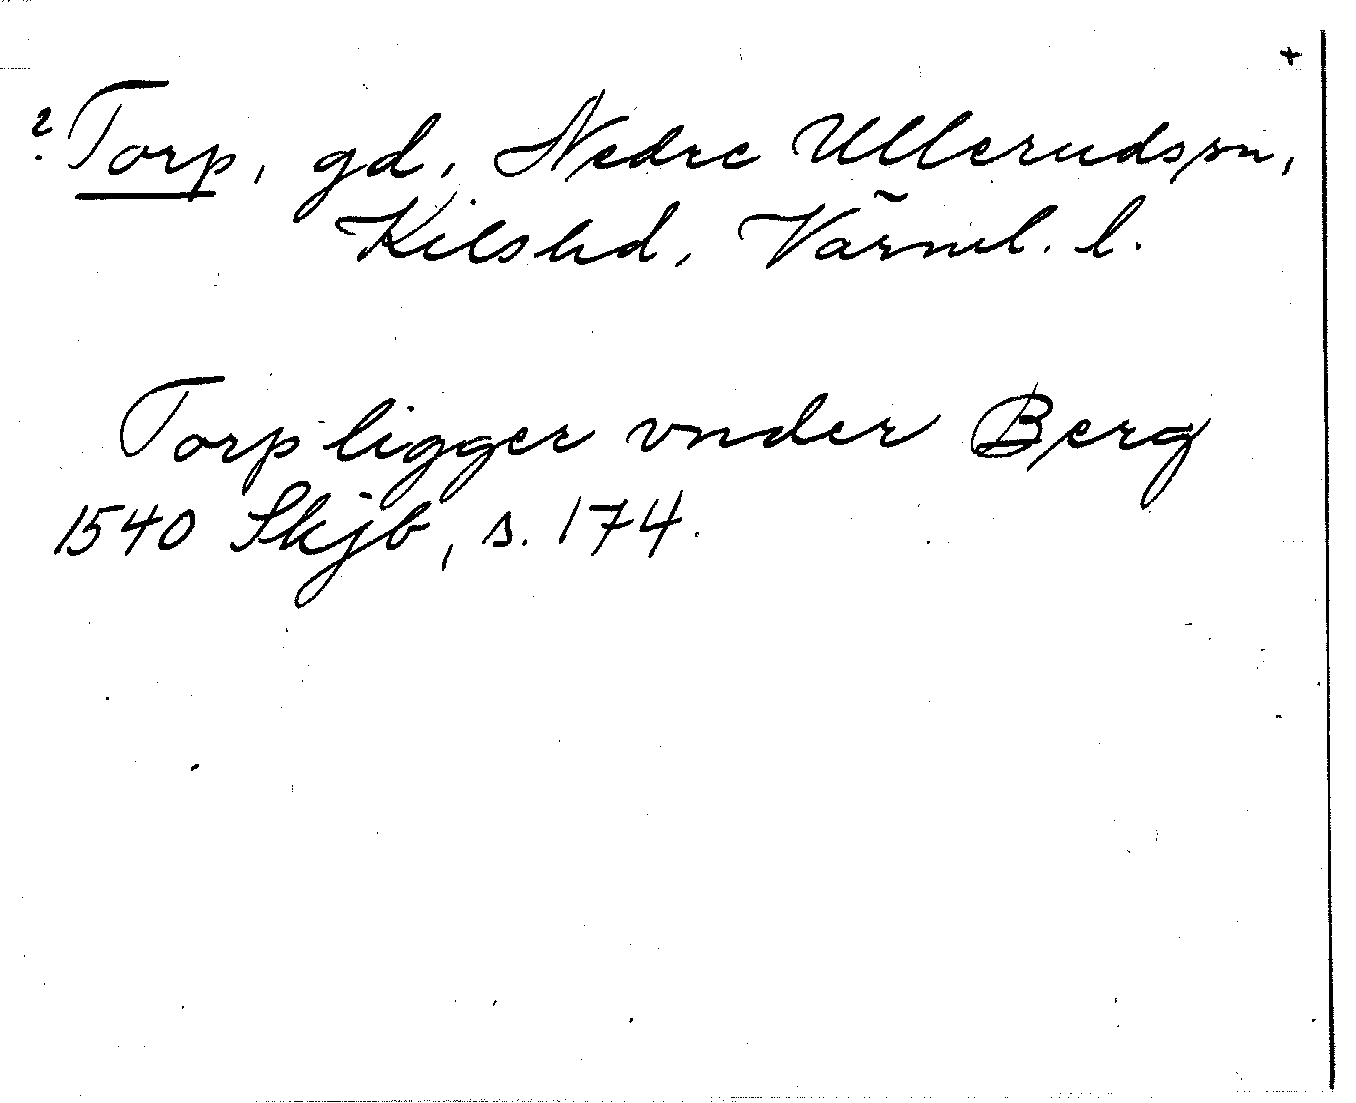 +
? Torp, gd, Nedre Ullerudssn,
Kilshd, Värml. l.
Torp ligger vnder Berg
1540 Skjb, s. 174.